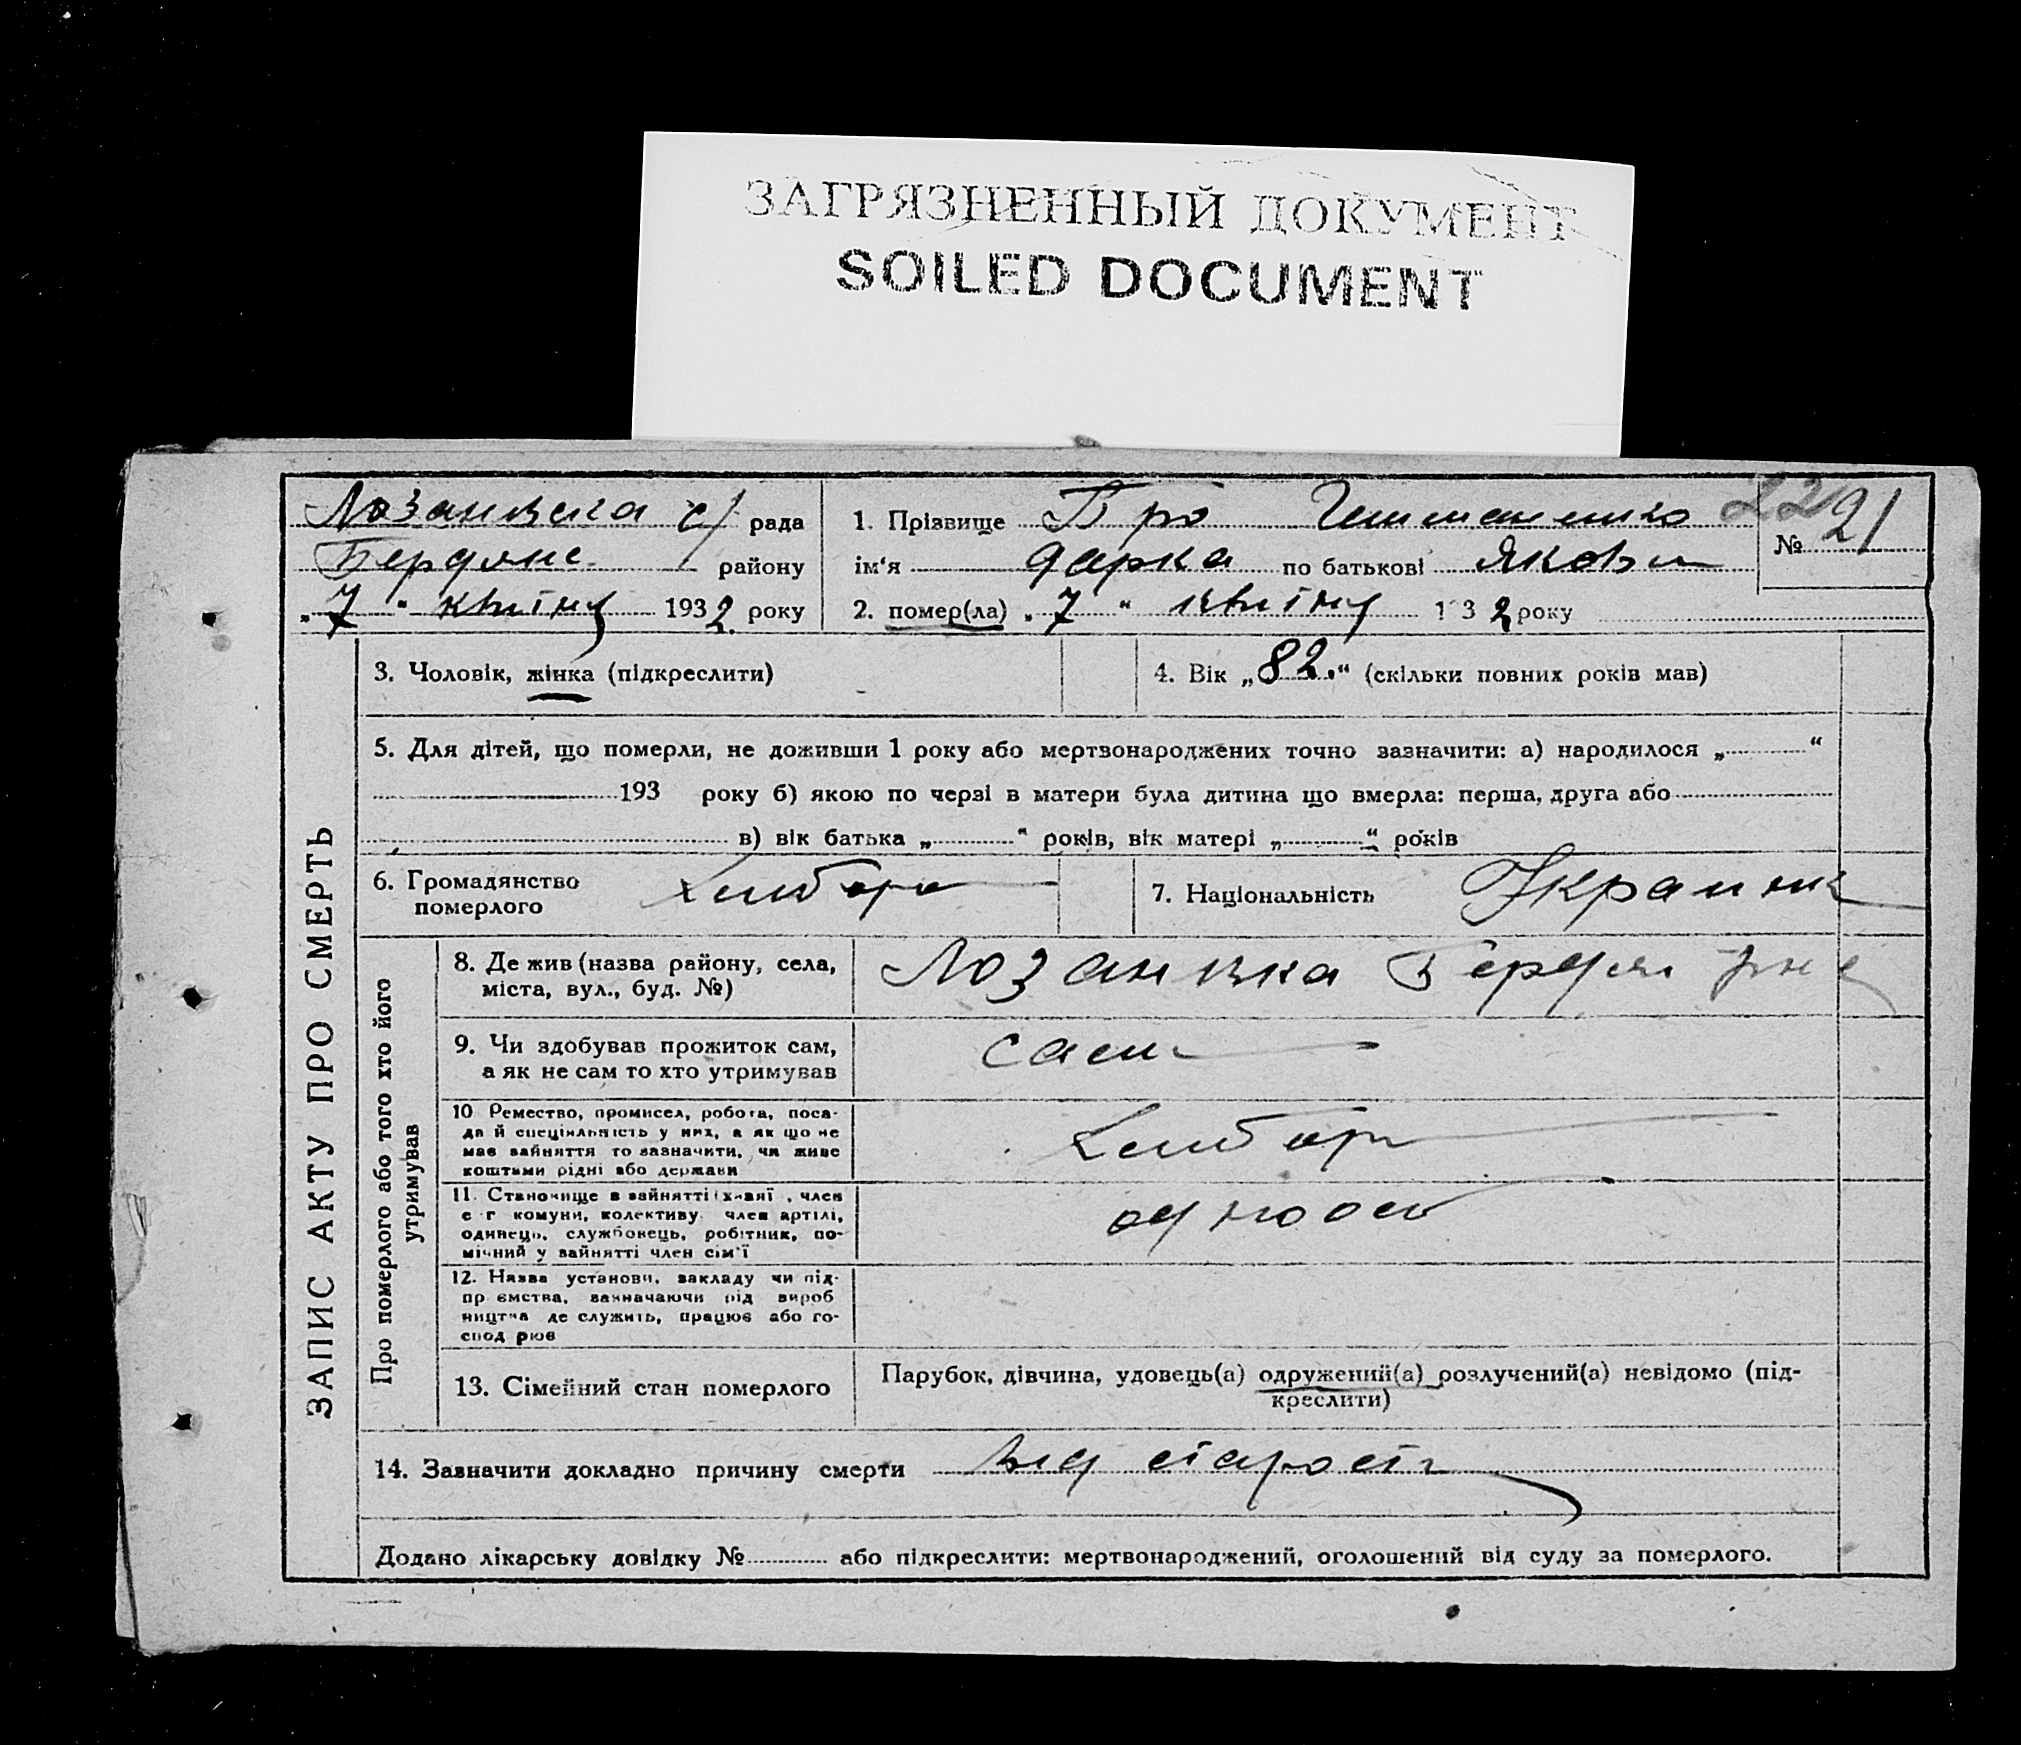 ЗАГРЯЗНЕННЫЙ ДОКУМЕНТ
SOILED DOCUMENT
22
№ 21
Лозанвска с/ рада
Бердянс району
„7“ квітня 1932 року
1. Прізвище Про
ім'я Дарка по батькові Якови
2. помер(ла) „7“ квітня 1 3 2 року
ЗАПИС АКТУ ПРО СМЕРТЬ
3. Чоловік, жінка (підкреслити)
4. Вік „82.“ (скільки повних років мав)
5. Для дітей, що померли, не доживши 1 року або мертвонароджених точно зазначити: а) народилося „ “
193 року б) якою по черзі в матери була дитина що вмерла: перша, друга або
в) вік батька „ “ років, вік матері „ “ років
6. Громадянство
померлого
Хлібор
7. Національність Украинк
Про померлого або того хто його
утримував
8. Де жив (назва району, села,
міста, вул., буд. №)
Лозанвка Бердян
9. Чи здобував прожиток сам,
а як не сам то хто утримував
сам
10 Ремество, промисел, робота, поса-
да й спеціяльність у них, а як що не
має зайняття то зазначити, чи живе
коштами рідні або держави
Хлібор
11. Становище в зайнятті (хазяї , член
с г комуни, колективу, член артілі,
одинець, службовець, робітник, по-
мічний у зайнятті член сім'ї
одноос
12. Назва установи, закладу чи під-
пр ємства, зазначаючи рід вироб
ництва де служить, працює або го-
спод рює
13. Сімейний стан померлого
Парубок, дівчина, удовець(а) одружений(а) розлучений(а) невідомо (під-
креслити)
14. Зазначити докладно причину смерти від старости
Додано лікарську довідку № або підкреслити: мертвонароджений, оголошений від суду за померлого.